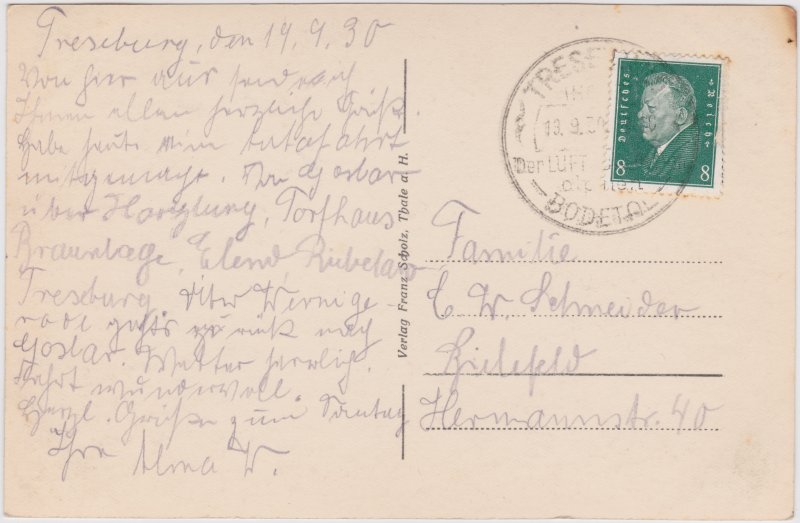 Treseburg, den 19.9.30
Von hier aus sende ich
Ihnen allen herzliche Grüße.
Habe heute eine Autofahrt
mitgemacht. Von Goslar
über Harzburg, Torfhaus
Braunlage, Elend, Rübeland,
Treseburg. Über Wernige-
rode gehts zurück nach
Goslar. Wetter herrlich,
Fahrt wundervoll.
Herzl. Grüße zum Sonntag
Ihre Alma W.
Verlag Franz Scholz, Thale a. H.
TRESEBURG
IM
19.9.30
Der LUFT
BODETAL
Deutsches Reich
8 8
Familie
C. W. Schneider
Bielefeld
Hermannstr. 40